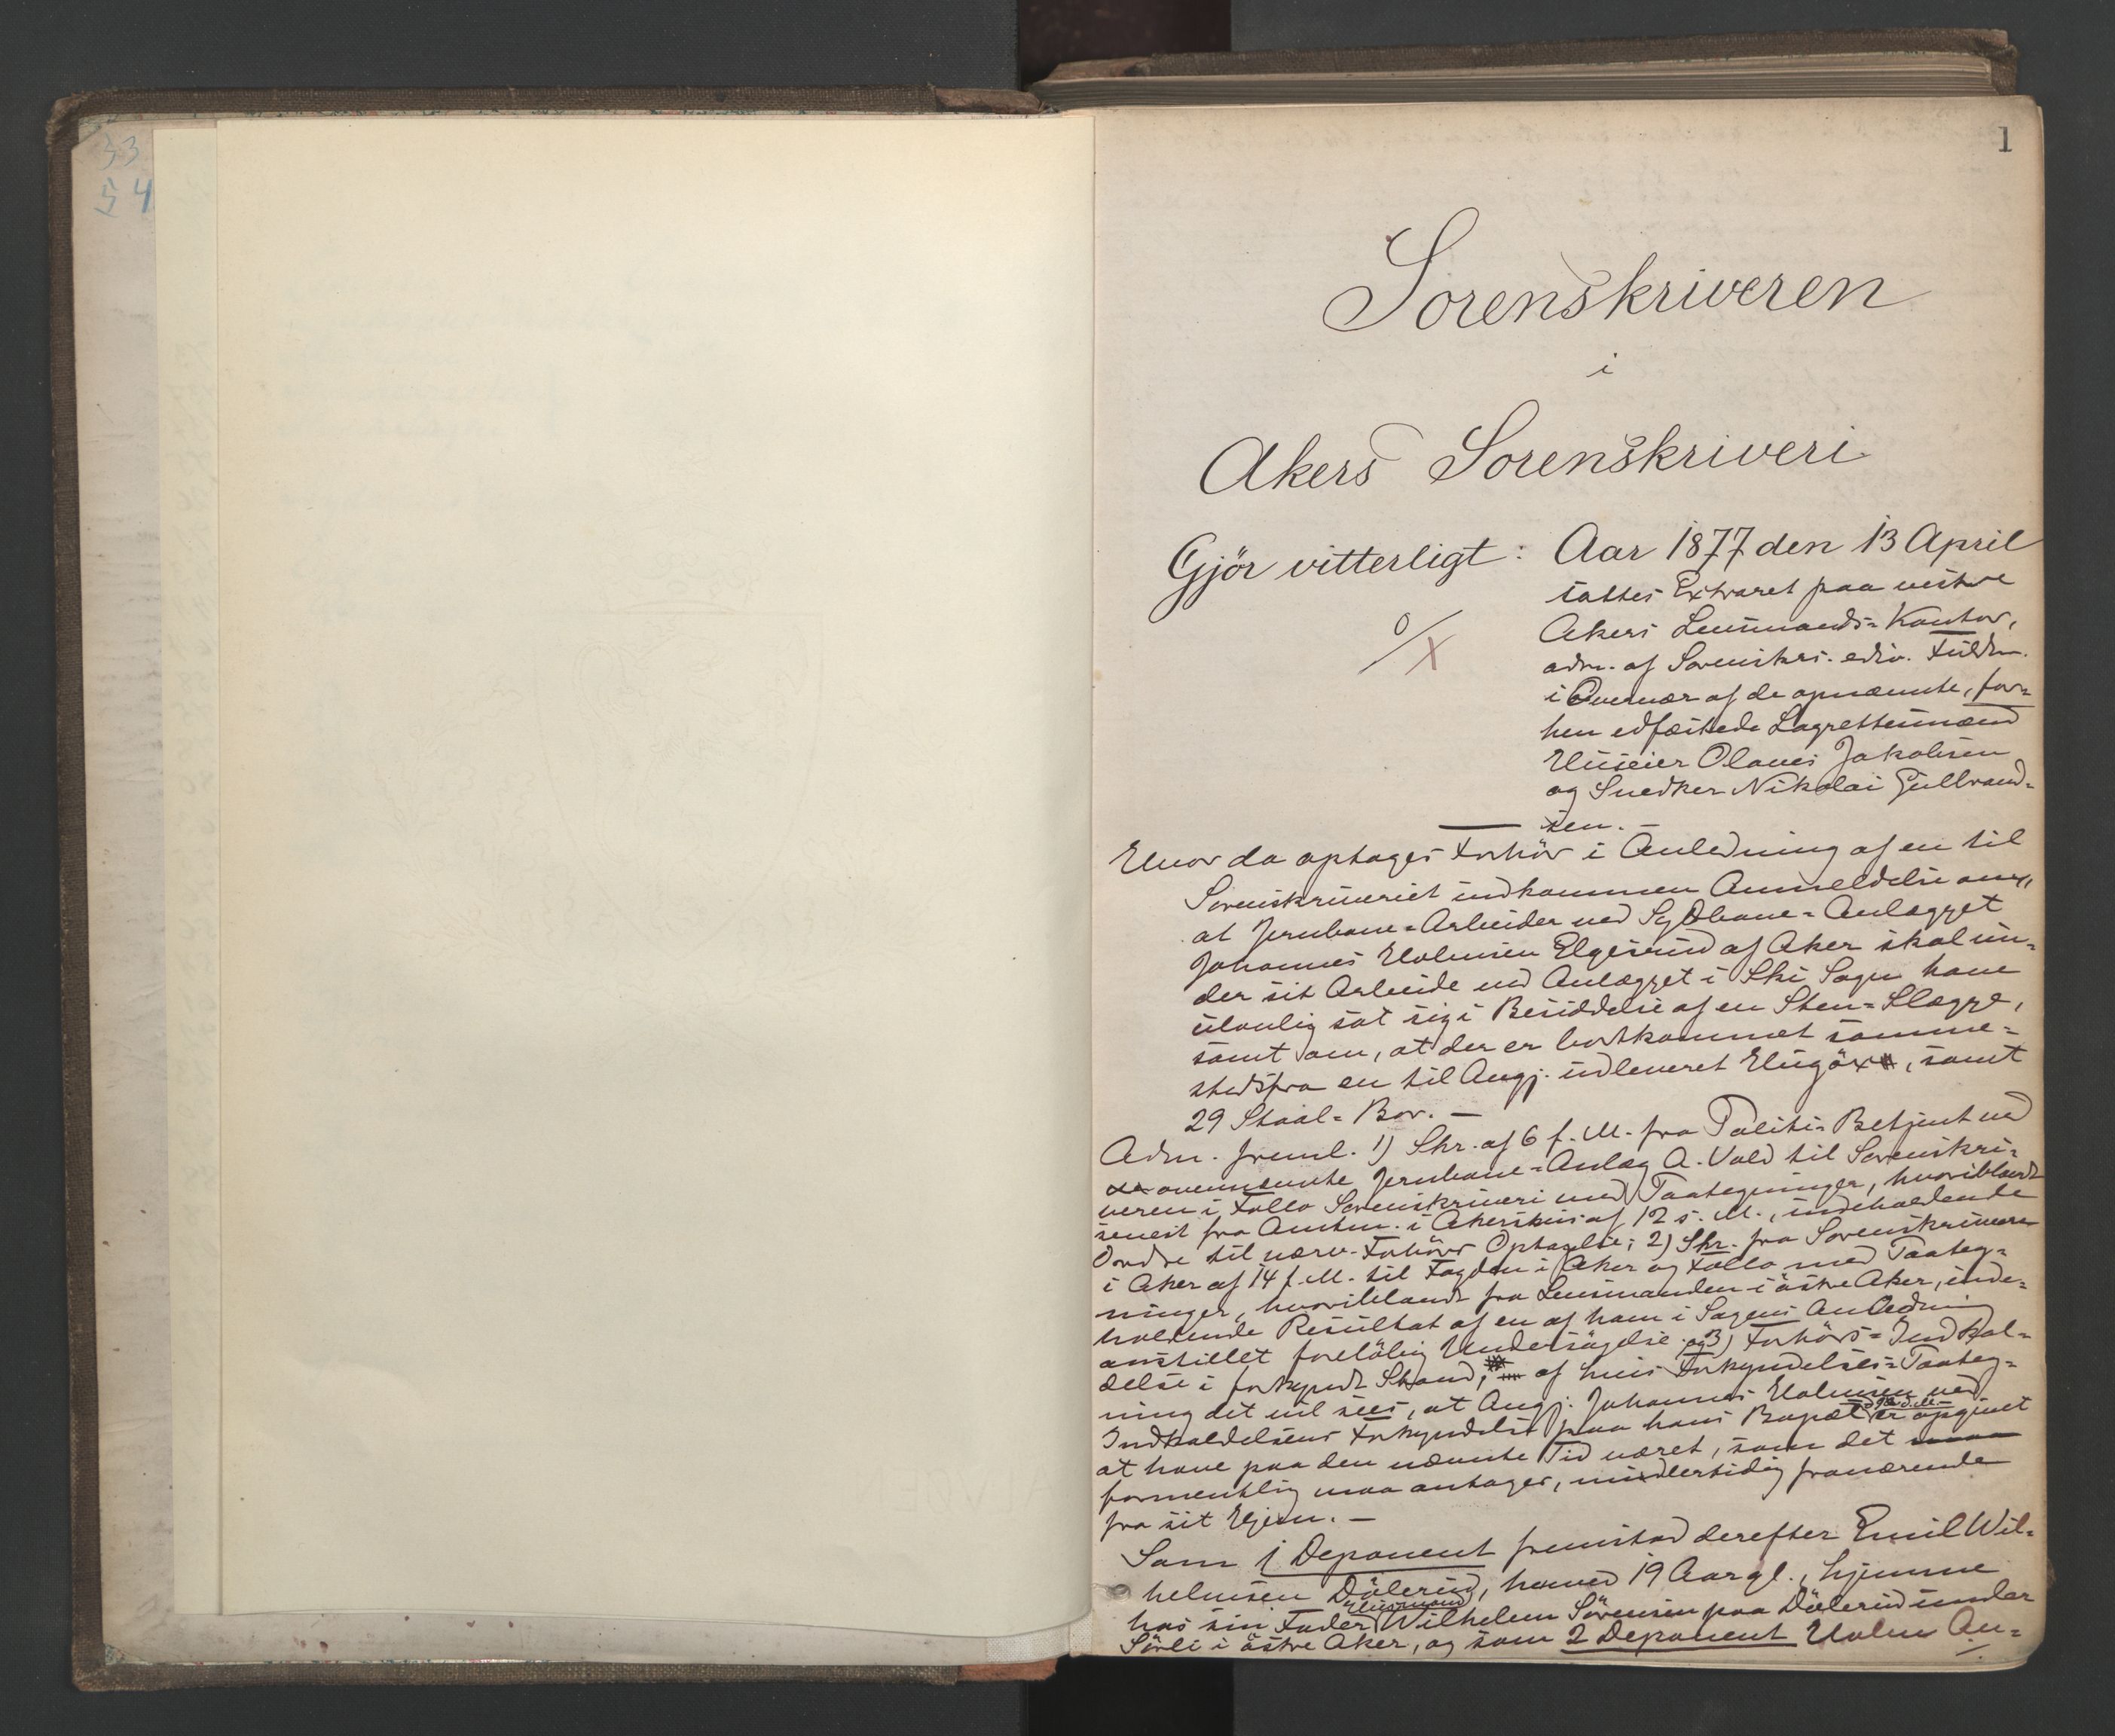 33
54
1
Sorenskriveren
i
Akers Sorenskriveri
Gjör vitterligt: Aar 1877 den 13 April
sattes Extraret paa vestre
Akers Lensmands-Kontor,
adm. af Sorenskrs. edsv. Fuldm.
i Overvær af de opnævnte, for-
hen edfæstede Lagrettesmænd
Huseier Olaves Jakobsen
og Snedker Nikolai Gulbrand-
sen. -
Hvor da optages Forhör i Anledning af en til
Sorenskriveriet indkommen Anmeldelse om,
at Jernbane-Arbeider ved Sydbane-Anlægget
Johannes Holmsen Elgesrud af Aker skal un-
der sit Arbeide ved Anlægget i Ski Sogn have
ulovlig sat sig i Besiddelse af en Sten-Slægge,
samt om, at der er bortkommet samme-
stedsfra en til Angj. udleveret Hugöx, samt
29 Staal-Bor. -
Adm. freml. 1) Skr. af 6 f. M. fra Politi-Betjent ved
ovennævnte Jernbane-Anlæg A. Vold til Sorenskri-
veren i Follo Sorenskriveri med Paategninger, hvoriblandt
senest fra Amtm. i Akershus af 12 s. M., indeholdende
Ordre til nærv. Forhörs Optagelse; 2) Skr. fra Sorenskriveren
i Aker af 14 f. M. til Fogden i Aker og Follo med Paateg-
ninger, hvoriblandt fra Lensmanden i östre Aker, inde-
holdende Resultat af en af ham i Sagens Anledning
anstillet forelöbig Undersögelse og 3) Forhörs-Indkal-
delse i forkyndt Stand, af hvis Forkyndelses-Paateg-
ning det vil sees, at Angj. Johannes Holmsen ved
Indkaldelsens Forkyndelse paa hans Bopæl er opgivet
at have paa den nævnte Tid været, som det
formentlig maa antages, midlertidig fraværende
fra sit Hjem. -
Som 1 Deponent fremstod derefter Emil Wil-
helmsen Dölerud, henved 19 Aar gl., hjemme
hos sin Fader Husmand Wilhelm Sörensen paa Dölerud under
Sörli i östre Aker, og som 2 Deponent Holm An-